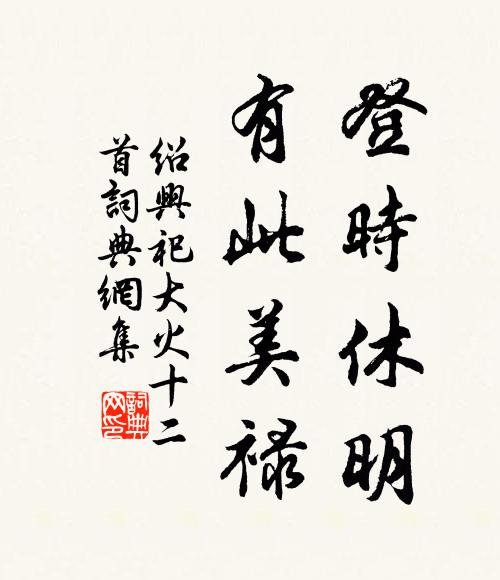 登時休明
有此美祿
紹興祀大火十二
首詞典網集
詞典
网印